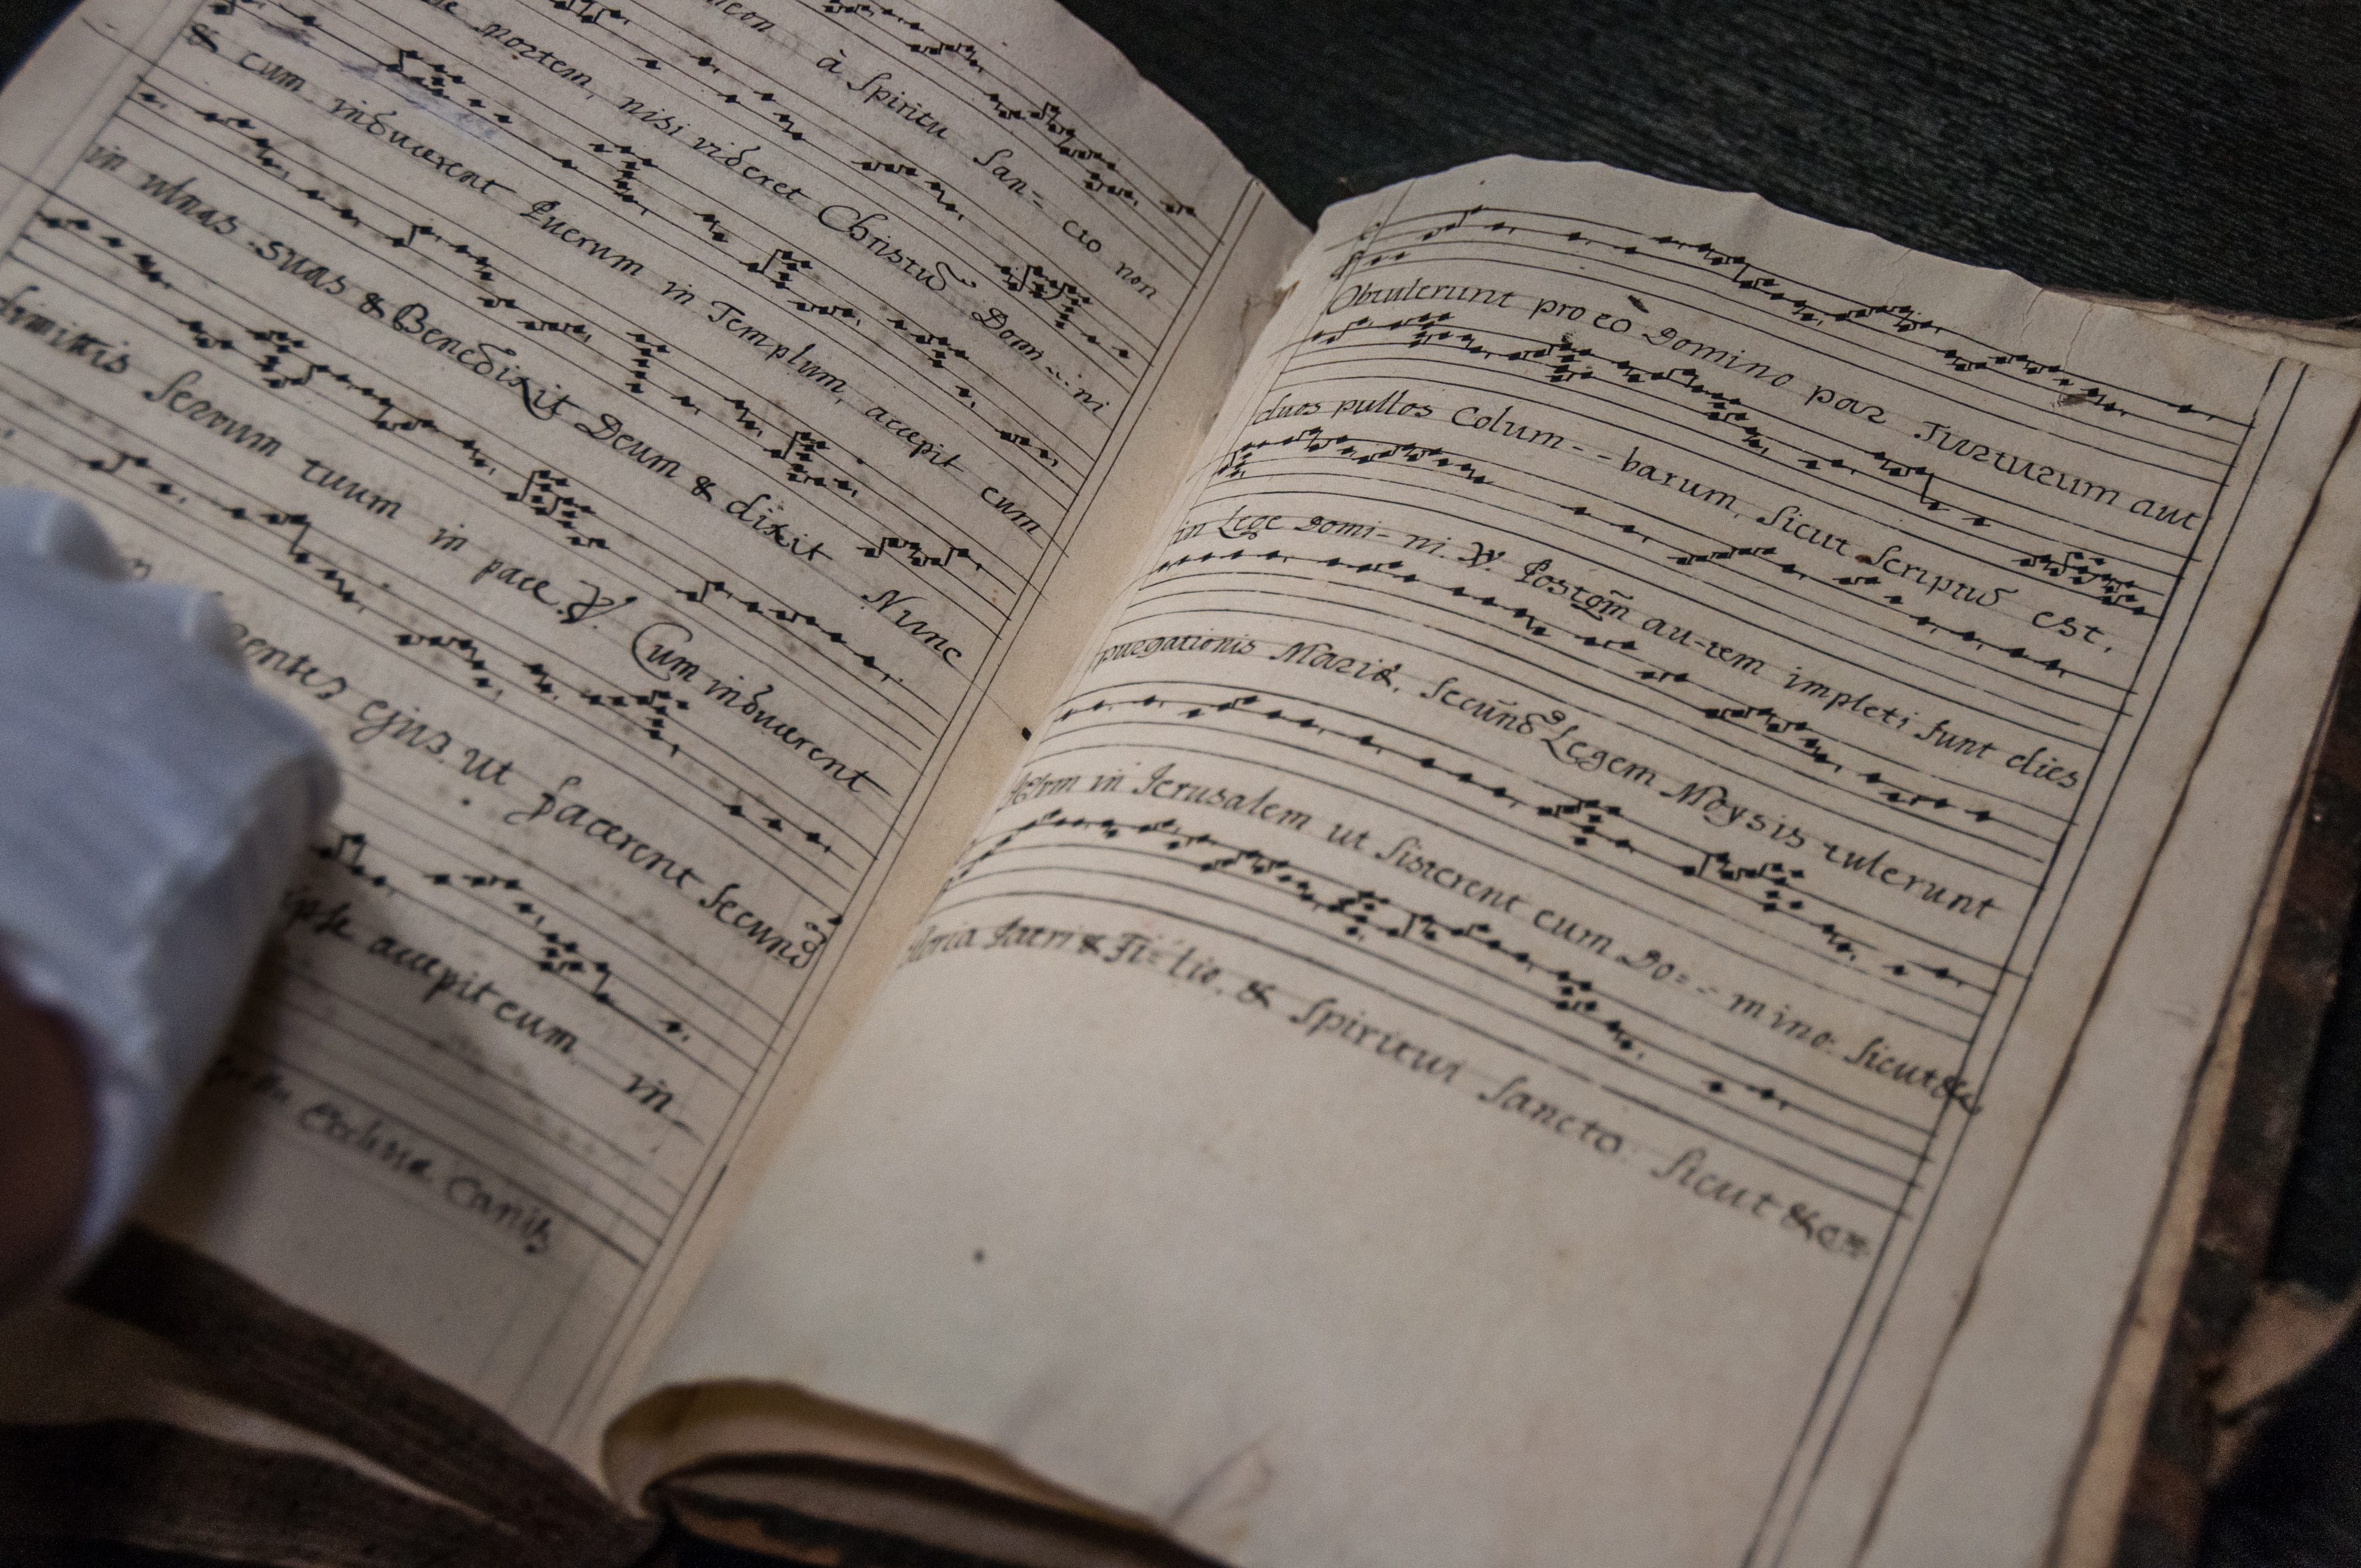 à Spiritu San- cto non
mortem, nisi videret Christū Domi--ni
& cum inducerent Puerum in Templum, accepit eum
in ulnas suas & Benedixit Deum & dixit Nunc
dimittis Servum tuum in pace. ℣. Cum inducerent
ejus ut facerent Secund
ipse accepit eum in
Ecclesia
Obtulerunt pro eo Domino par Turturum aut
duos pullos Colum--barum, Sicut Scriptū est,
in Lege Domi-ni. ℣. Postqm̄ au-tem impleti sunt dies
purgationis Mariæ, Secund Legem Moysis tulerunt
in Jerusalem ut Sisterent eum Do=-mino: Sicut &c
Gloria Patri & Fi=lio, & Spiritui Sancto: Sicut &c